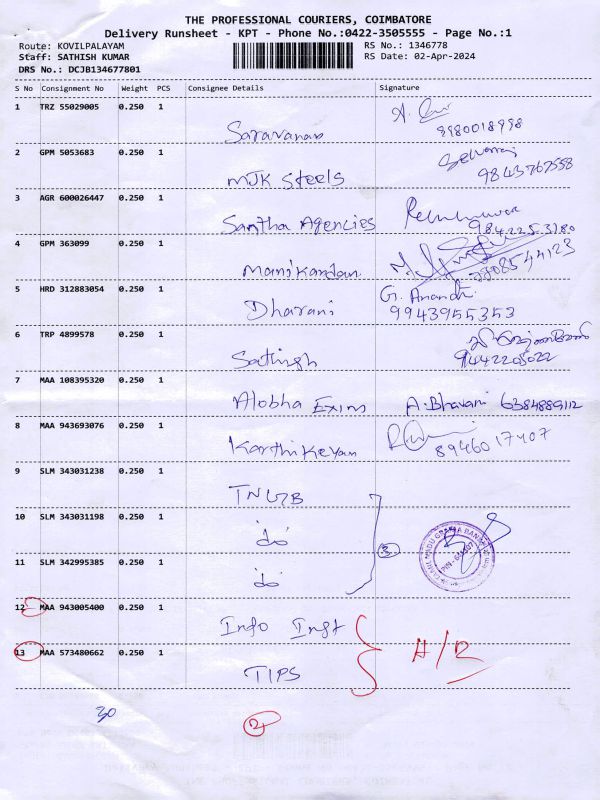 THE PROFESSIONAL COURIERS, COIMBATORE
Delivery Runsheet - KPT - Phone No.:0422-3505555 - Page No.:1
Route: KOVILPALAYAM RS No.: 1346778
Staff: SATHISH KUMAR RS Date: 02-Apr-2024
DRS No.: DCJB134677801
S No Consignment No Weight PCS Consignee Details Signature
1 TRZ 55029005 0.250 1
Saravanan 9980018998
2 GPM 5053683 0.250 1
MJK Steels 9843767558
3 AGR 600026447 0.250 1
Santha Agencies 9842253180
4 GPM 363099 0.250 1
Manikandan
5 HRD 312883054 0.250 1 G. Anandhi
Dharani 9943955353
6 TRP 4899578 0.250 1
Sathish 9442205022
7 MAA 108395320 0.250 1
Alobha Exims A.Bhavani 6384889112
8 MAA 943693076 0.250 1
Karthikeyan 8946017407
9 SLM 343031238 0.250 1
TNGB
10 SLM 343031198 0.250 1
do 3
11 SLM 342995385 0.250 1
do
12 MAA 943005400 0.250 1
Info Inst
13 MAA 573480662 0.250 1 A/R
TIPS
30
2